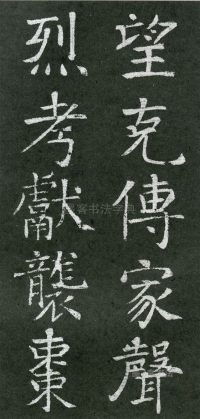 望克傳家聲
烈考獻襲棗